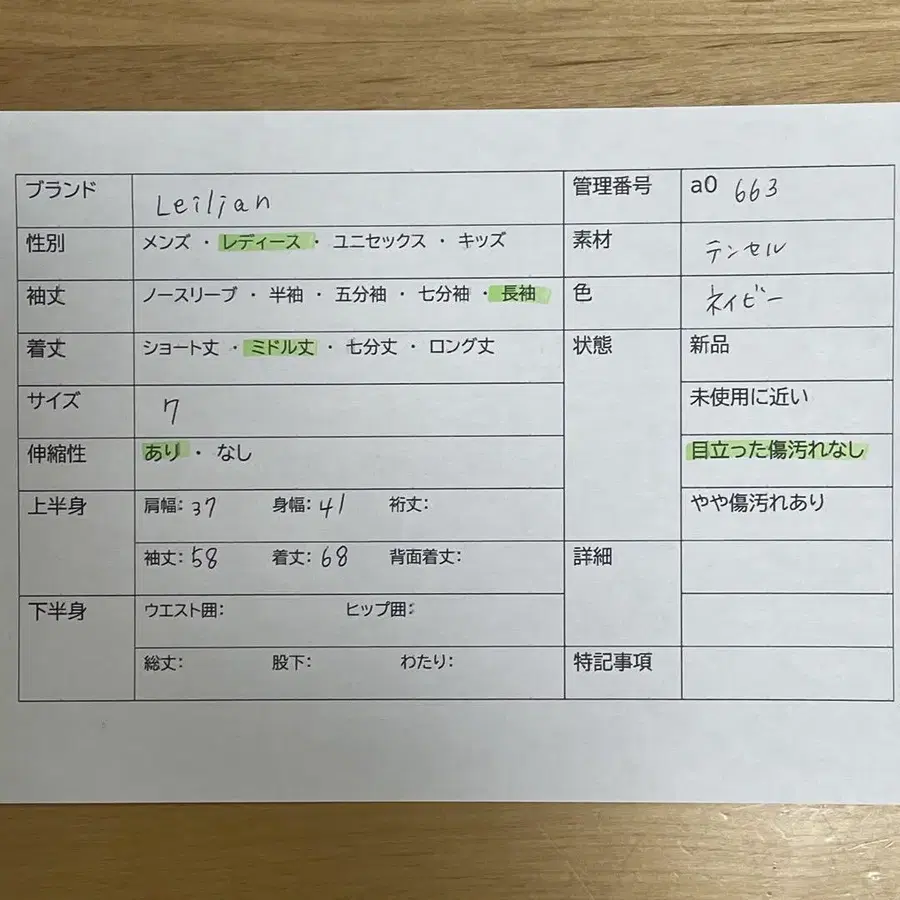 ブランド Leilian 管理番号 a0 663
性別 メンズ ・ レディース ・ ユニセックス ・ キッズ 素材 テンセル
袖丈 ノースリーブ ・ 半袖 ・ 五分袖 ・ 七分袖 ・ 長袖 色 ネイビー
着丈 ショート丈 ・ ミドル丈 ・ 七分丈 ・ ロング丈 状態 新品
サイズ 7 未使用に近い
伸縮性 あり ・ なし 目立った傷汚れなし
上半身 肩幅: 37 身幅: 41 裄丈: やや傷汚れあり
袖丈: 58 着丈: 68 背面着丈: 詳細
下半身 ウエスト囲: ヒップ囲:
総丈: 股下: わたり: 特記事項